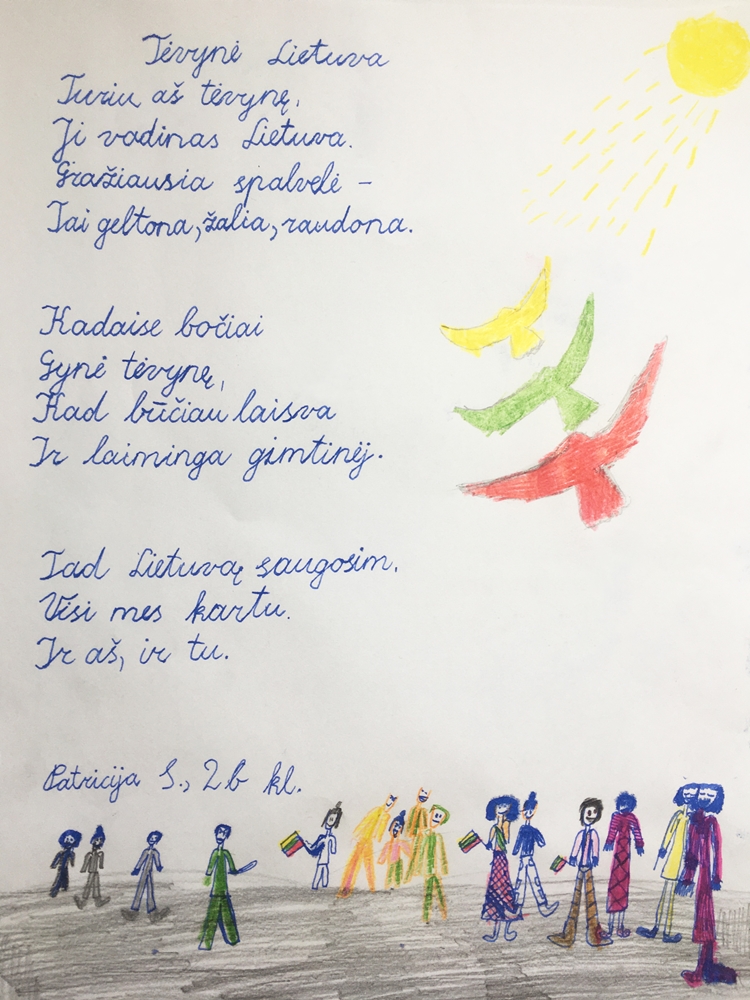 Tėvynė Lietuva
Turiu aš tėvynę,
Ji vadinas Lietuva.
Gražiausia spalvelė –
Tai geltona, žalia, raudona.
Kadaise bočiai
Gynė tėvynę,
Kad būčiau laisva
Ir laiminga gimtinėj.
Tad Lietuvą saugosim.
Visi mes kartu.
Ir aš, ir tu.
Patricija S., 2b kl.